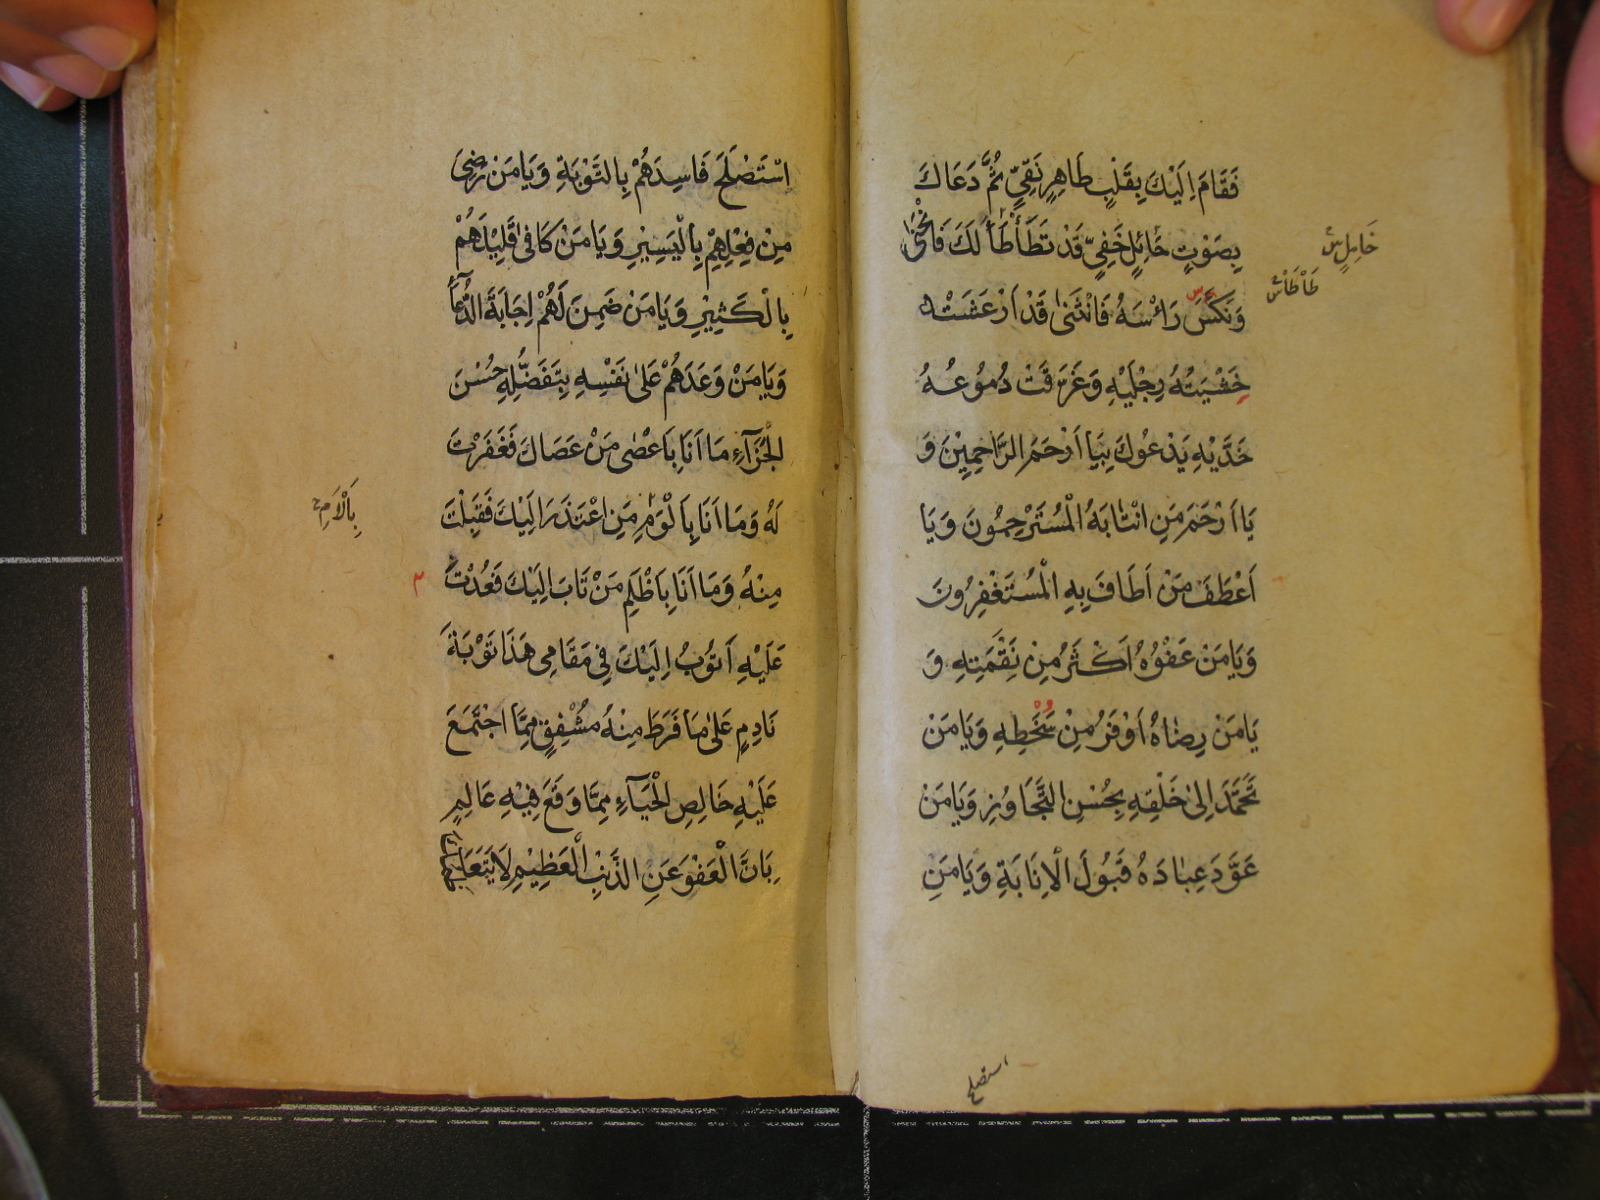 فَقَامَ اِلَيْكَ بِقَلْبٍ طَاهِرٍ نَقِيٍّ ثُمَّ دَعَاكَ
بِصَوْتٍ حَائِلٍ خَفِيٍّ قَدْ تَطَأْطَأَ لَكَ فَانْحَنٰى
خَامِلٍ س
طَأْطَأَ س
وَنَكَّسَ رَاْسَهُ فَانْثَنٰى قَدْ اَرْعَشَتْ
خَشْيَتُهُ رِجْلَيْهِ وَغَرَّقَتْ دُمُوعُهُ
خَدَّيْهِ يَدْعُوكَ بِيَا اَرْحَمَ الرَّاحِمِيْنَ وَ
يَا اَرْحَمَ مَنِ انْتَابَهُ الْمُسْتَرْحِمُونَ وَيَا
اَعْطَفَ مَنْ اَطَافَ بِهِ الْمُسْتَغْفِرُونَ
وَيَا مَنْ عَفْوُهُ اَكْثَرُ مِنْ نَقْمَتِهِ وَ
يَا مَنْ رِضَاهُ اَوْفَرُ مِنْ سَخَطِهِ وَيَا مَنْ
تَحَمَّدَ اِلٰى خَلْقِهِ بِحُسْنِ التَّجَاوُزِ وَيَا مَنْ
عَوَّدَ عِبَادَهُ قَبُولَ الْاِنَابَةِ وَيَا مَنِ
استصلح
اسْتَصْلَحَ فَاسِدَهُمْ بِالتَّوْبَةِ وَيَا مَنْ رَضِيَ
مِنْ فِعْلِهِمْ بِالْيَسِيْرِ وَيَا مَنْ كَافٰى قَلِيْلَهُمْ
بِالْكَثِيْرِ وَيَا مَنْ ضَمِنَ لَهُمْ اِجَابَةَ الدُّعَاءِ
وَيَا مَنْ وَعَدَهُمْ عَلٰى نَفْسِهِ بِتَفَضُّلِهِ حُسْنَ
الْجَزَآءِ مَا اَنَا بِاَعْصٰى مَنْ عَصَاكَ فَغَفَرْتَ
لَهُ وَمَا اَنَا بِاَلْوَمِ مَنِ اعْتَذَرَ اِلَيْكَ فَقَبِلْتَ
بِاَلْاَمِ
مِنْهُ وَمَا اَنَا بِاَظْلَمِ مَنْ تَابَ اِلَيْكَ فَعُدْتَ
عَلَيْهِ اَتُوْبُ اِلَيْكَ فِي مَقَامِي هَذَا تَوْبَةَ
نَادِمٍ عَلٰى مَا فَرَطَ مِنْهُ مُشْفِقٍ مِمَّا اجْتَمَعَ
عَلَيْهِ خَالِصِ الْحَيَآءِ مِمَّا وَقَعَ فِيْهِ عَالِمٍ
بِاَنَّ الْعَفْوَ عَنِ الذَّنْبِ الْعَظِيْمِ لَا يَتَعَاظَمُكَ